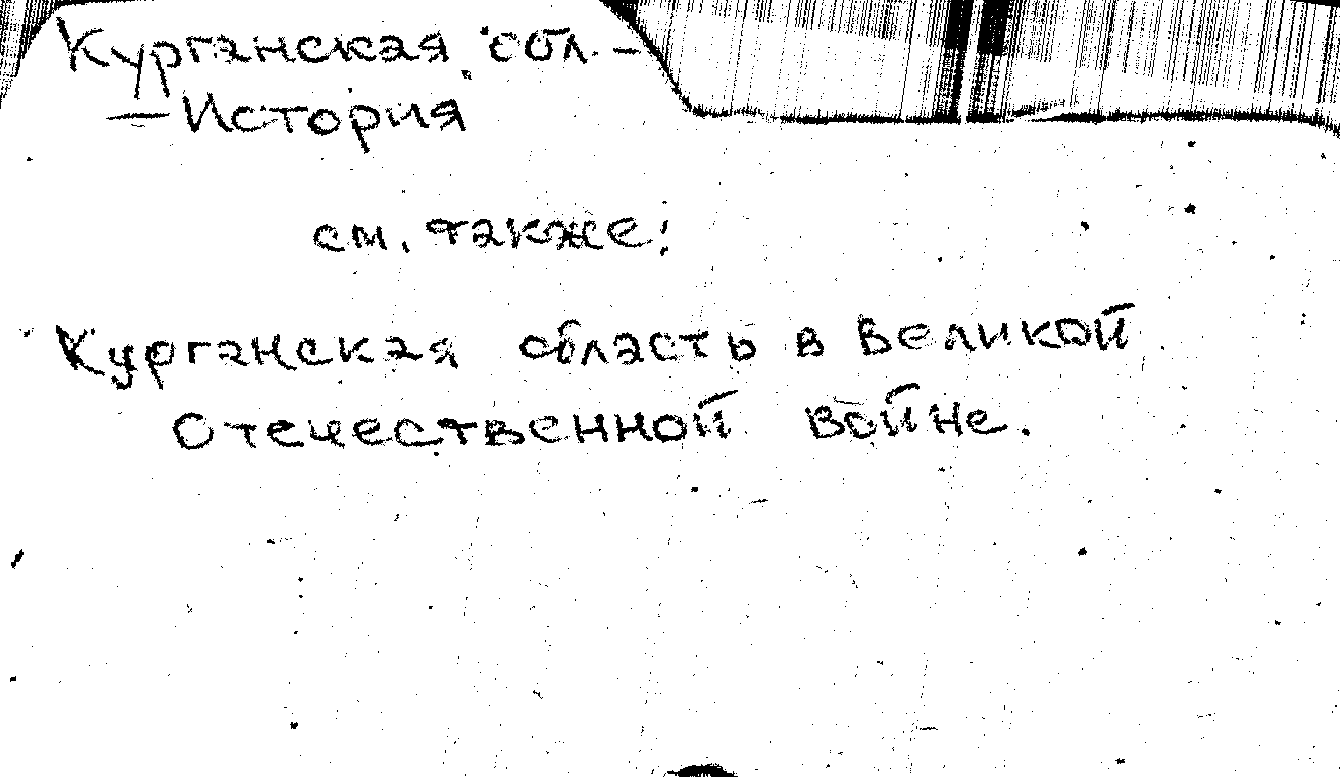 Курганская обл. –
– История
см. также:
Курганская область в Великой
Отечественной войне.